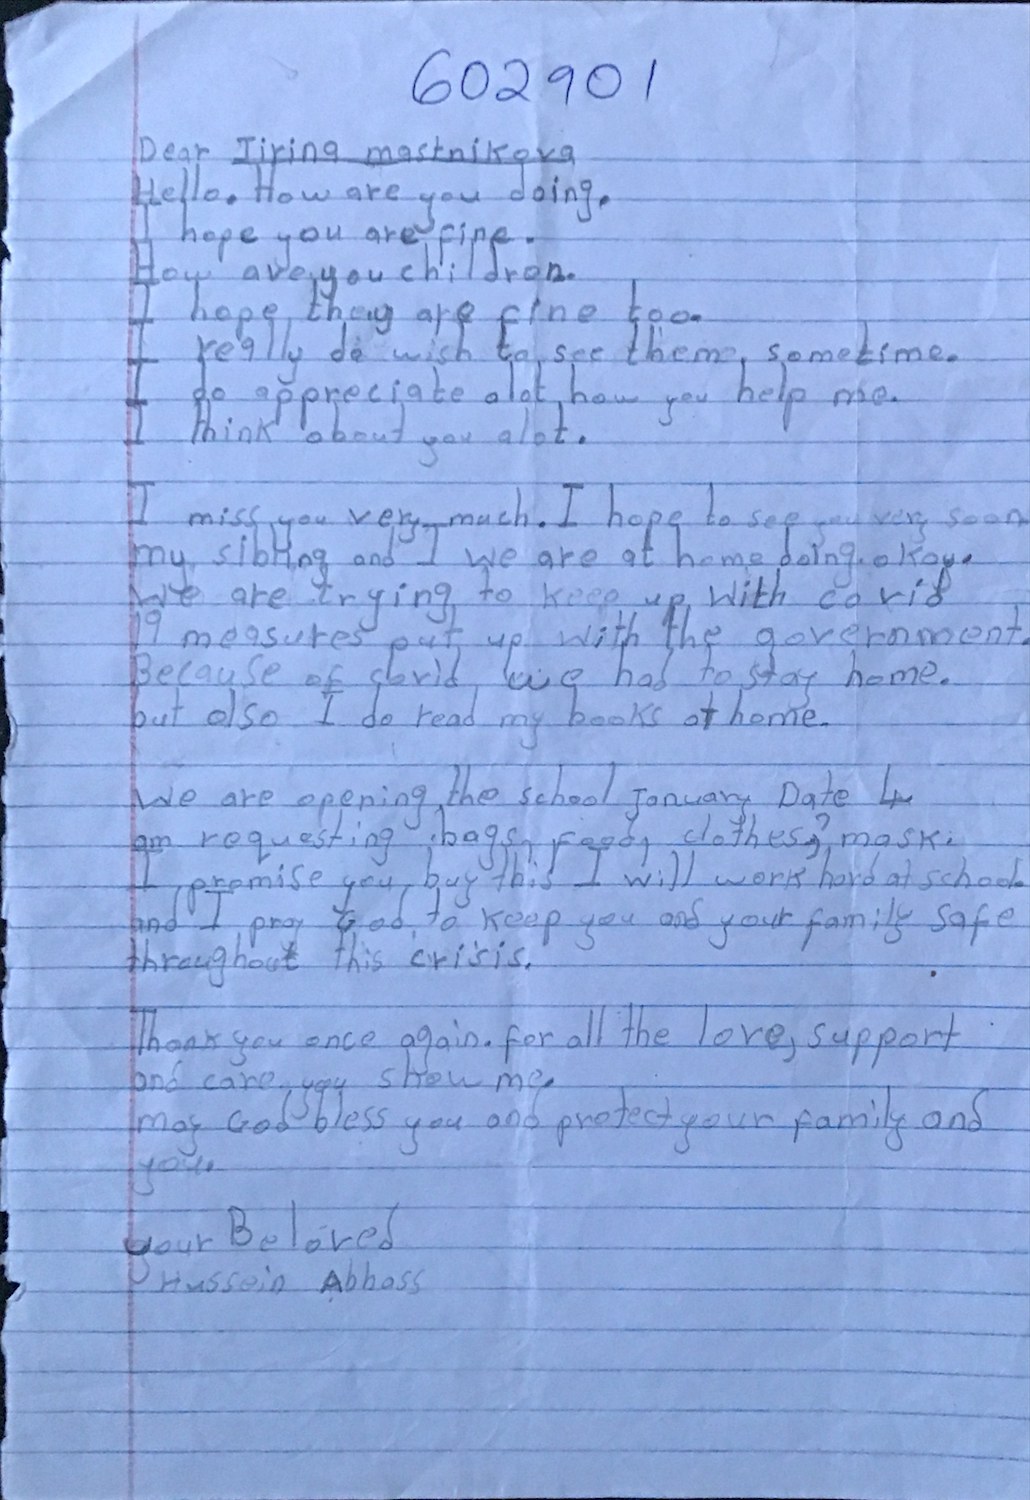 602901
Dear Jirina mastnikova
Hello. How are you doing.
I hope you are fine.
How are you children.
I hope they are fine too.
I really do wish to see them, sometime.
I do appreciate alot how you help me.
I think about you alot.
I miss you very much. I hope to see you very soon
my sibling and I we are at home doing okay.
We are trying to keep up with covid
19 measures put up with the government.
Because of covid we had to stay home.
but also I do read my books at home.
We are opening the school January Date 4
am requesting bags, food, clothes, mask.
I promise you, buy this I will work hard at school
and I pray God to keep you and your family safe
throughout this crisis.
Thank you once again. for all the love, support
and care you show me.
may God bless you and protect your family and
you.
your Beloved
Hussein Abbass